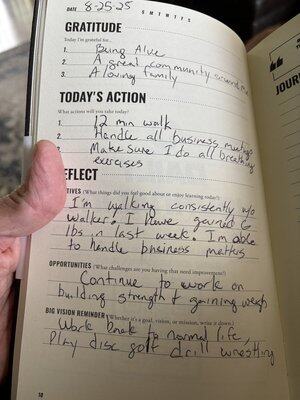 DATE 8-25-25 S M T W T F S
GRATITUDE
Today I'm grateful for...
1. Being Alive
2. A great community around me
3. A loving family
TODAY'S ACTION
What actions will you take today?
1. 12 min walk
2. Handle all business meetings
Make sure I do all breathing
exercises
EFLECT
TIVES (What things did you feel good about or enjoy learning today?)
I'm walking consistently w/o
walker! I have gained 6
lbs in last week. I'm able
to handle business matters
OPPORTUNITIES (What challenges are you having that need improvement?)
Continue to work on
building strength & gaining weigh
BIG VISION REMINDER (Whether it's a goal, vision, or mission, write it down.)
Work back to normal life,
Play disc golf drill wrestling
10
JOUR